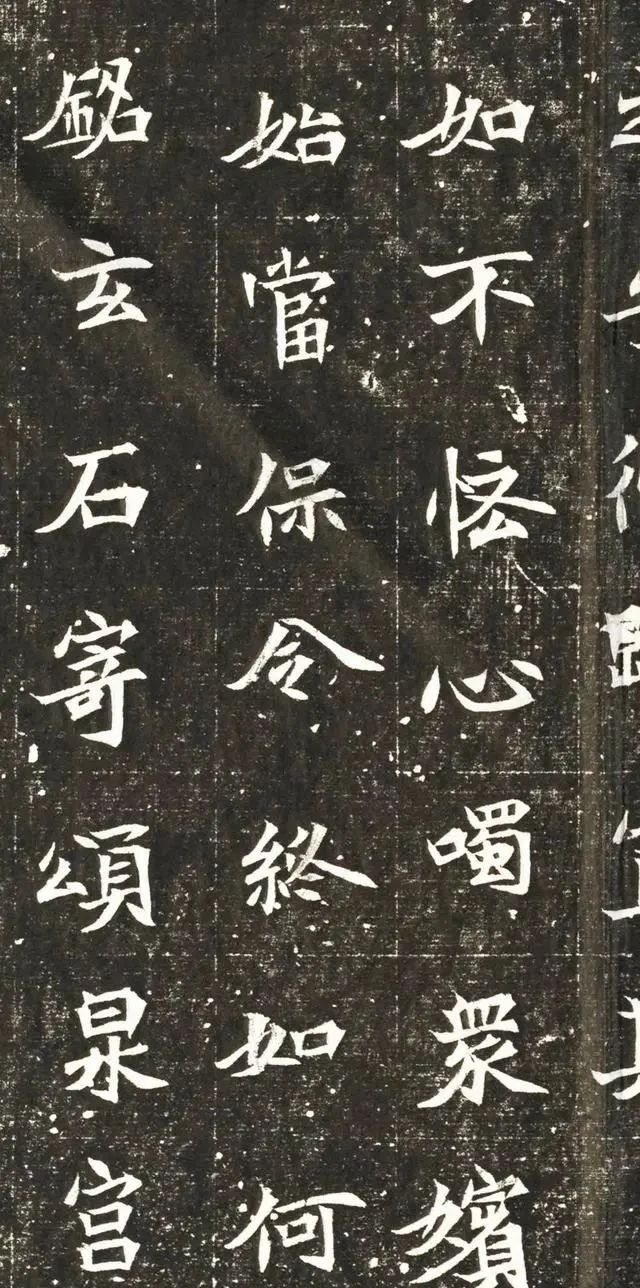 如不恡心囑衆嬪
始當保令終如何
銘玄石寄頌泉宮